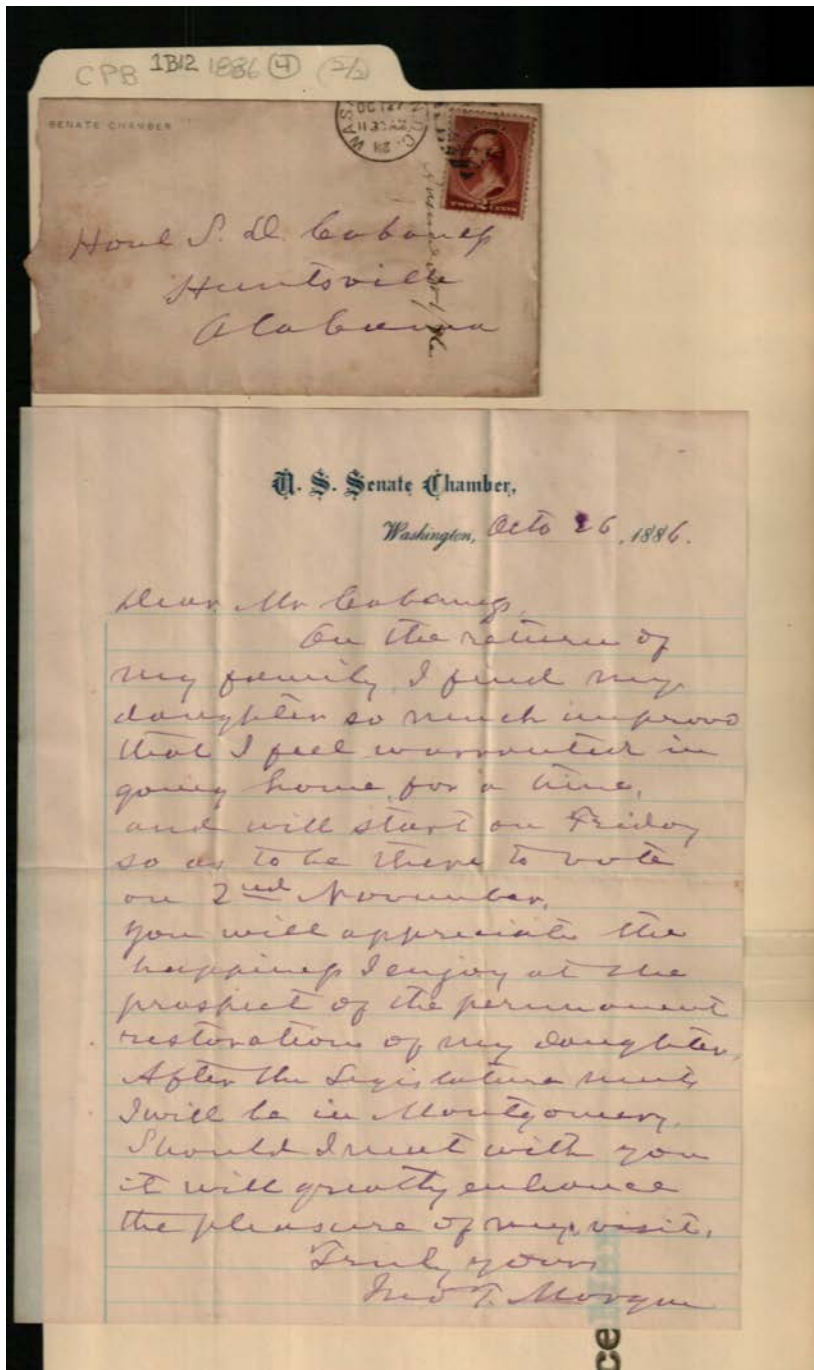 CPB 1B12 1886 (4) (2/2)
SENATE CHAMBER
WAS
D.C.
OCT 27
11
TWO CENTS
Honl S. D. Cabaness
Huntsville
Alabama
U. S. Senate Chamber,
Washington, Octo 26, 1886.
Dear Mr Cabaness,
On the return of
my family, I find my
daughter so much improvd
that I feel warranted in
going home, for a time,
and will start on Friday
so as to be there to vote
on 2nd November.
You will appreciate the
happiness I enjoy at the
prospect of the permanent
restoration of my daughter.
After the Legislature meets
I will be in Montgomery.
Should I meet with you
it will greatly enhance
the pleasure of my visit.
Truly yours
Jno T. Morgan
ce